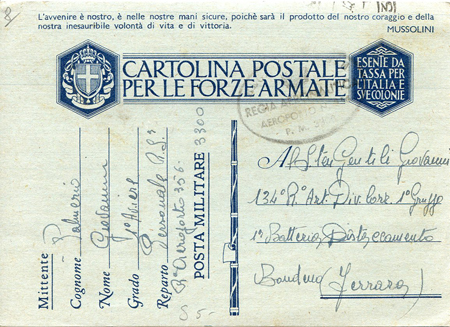 L'avvenire è nostro, è nelle nostre mani sicure, poichè sarà il prodotto del nostro coraggio e della
nostra inesauribile volontà di vita e di vittoria.
MUSSOLINI
CARTOLINA POSTALE
PER LE FORZE ARMATE
ESENTE DA
TASSA PER
L'ITALIA E
SVE COLONIE
REGIA
AEROPORTO
P. M. 3300
Al S.Ten Gentili Giovanni
134° R° Art. Div. Corr. 1° Gruppo
1ª Batteria Distaccamento
Bondeno (Ferrara)
Mittente
Cognome Palmerio
Nome Giovanni
Grado 1° Aviere
Reparto Personale A.S.
R° Aeroporto 356
POSTA MILITARE 3300